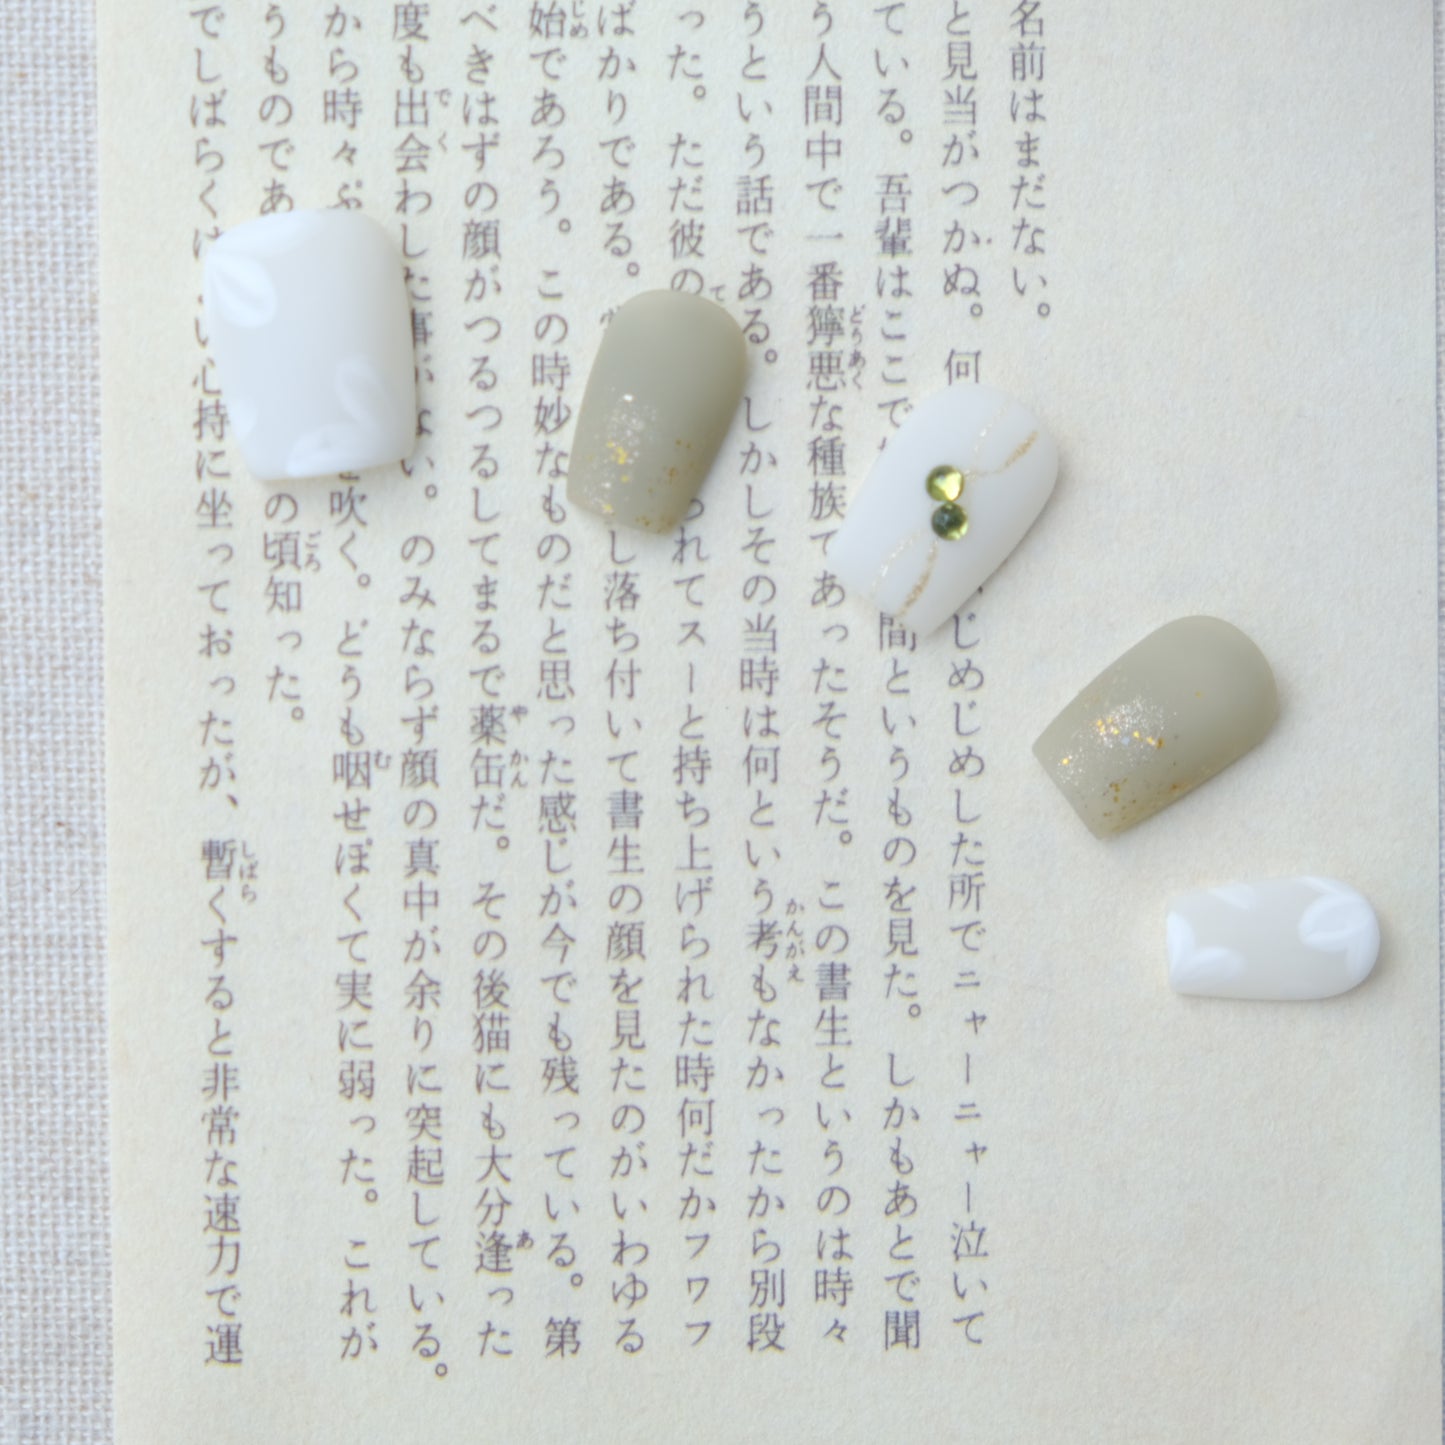 名前はまだない。
と見当がつかぬ。何 じめじめした所でニャーニャー泣いて
ている。吾輩はここで 間というものを見た。しかもあとで聞
う人間中で一番獰悪な種族であったそうだ。この書生というのは時々
うという話である。しかしその当時は何という考もなかったから別段
った。ただ彼の られてスーと持ち上げられた時何だかフワフワ
ばかりである。 し落ち付いて書生の顔を見たのがいわゆる
始であろう。この時妙なものだと思った感じが今でも残っている。第
べきはずの顔がつるつるしてまるで薬缶だ。その後猫にも大分逢った
度も出会わした事がない。のみならず顔の真中が余りに突起している。
から時々ぷ を吹く。どうも咽せぽくて実に弱った。これが
うものであ の頃知った。
でしばらくは い心持に坐っておったが、暫くすると非常な速力で運